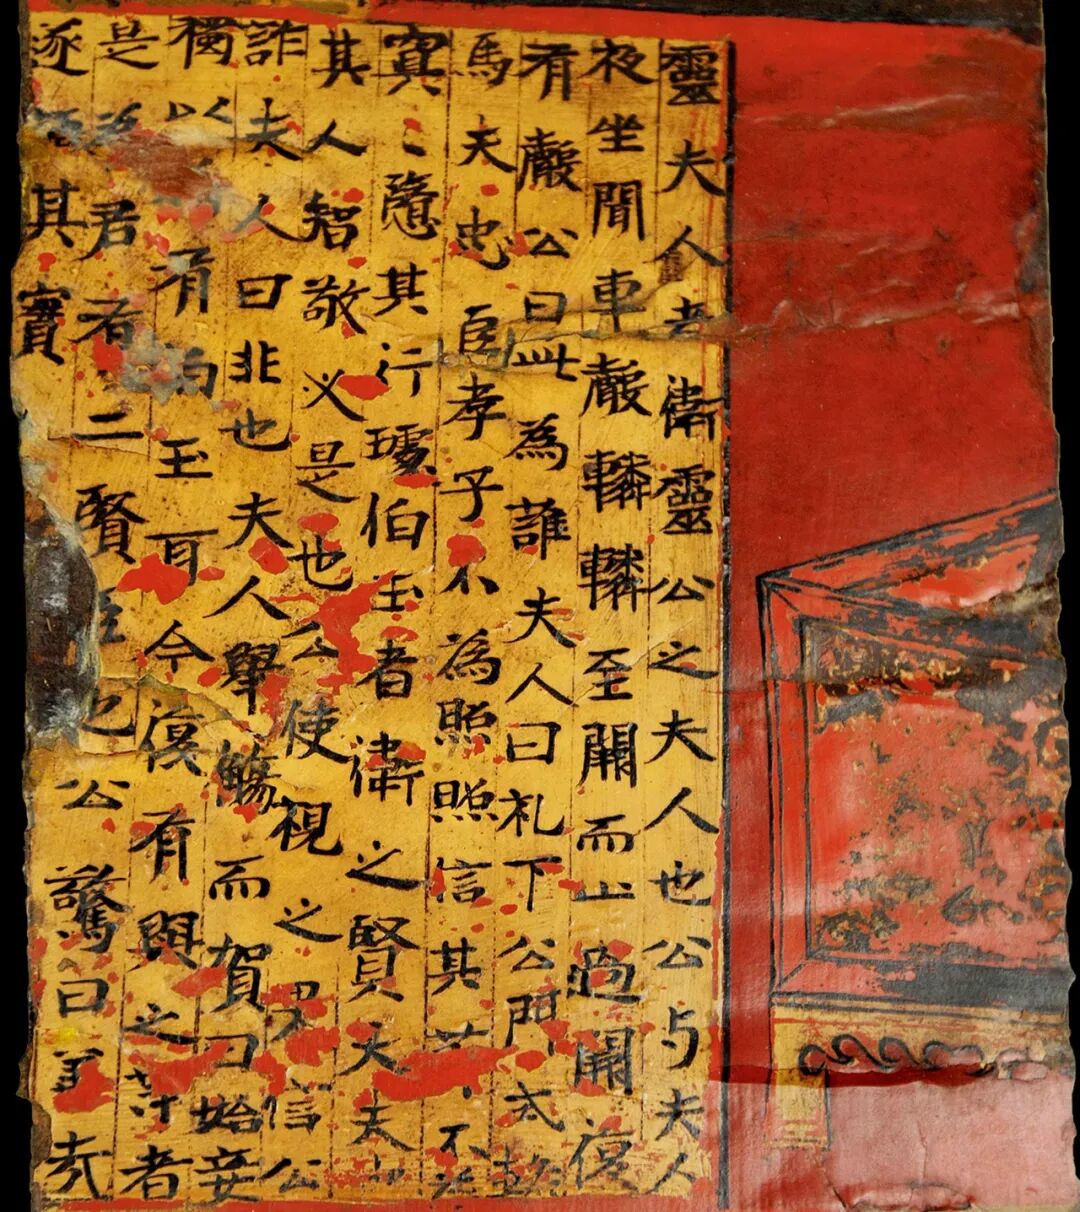 靈夫人者衛靈公之夫人也公与夫人
夜坐聞車聲轔轔至闕而止過闕復
有聲公曰此為誰夫人曰礼下公門式
馬夫忠臣孝子不為照照信其不
冥〻隨其行璩伯玉者衛之賢大夫
其人智敬必是也公使視之信公
詐夫人曰非也夫人舉觴而賀曰始妾
獨以有伯玉耳今復有與之等者
是為君者二賢臣也公驚曰善哉
遂語其實